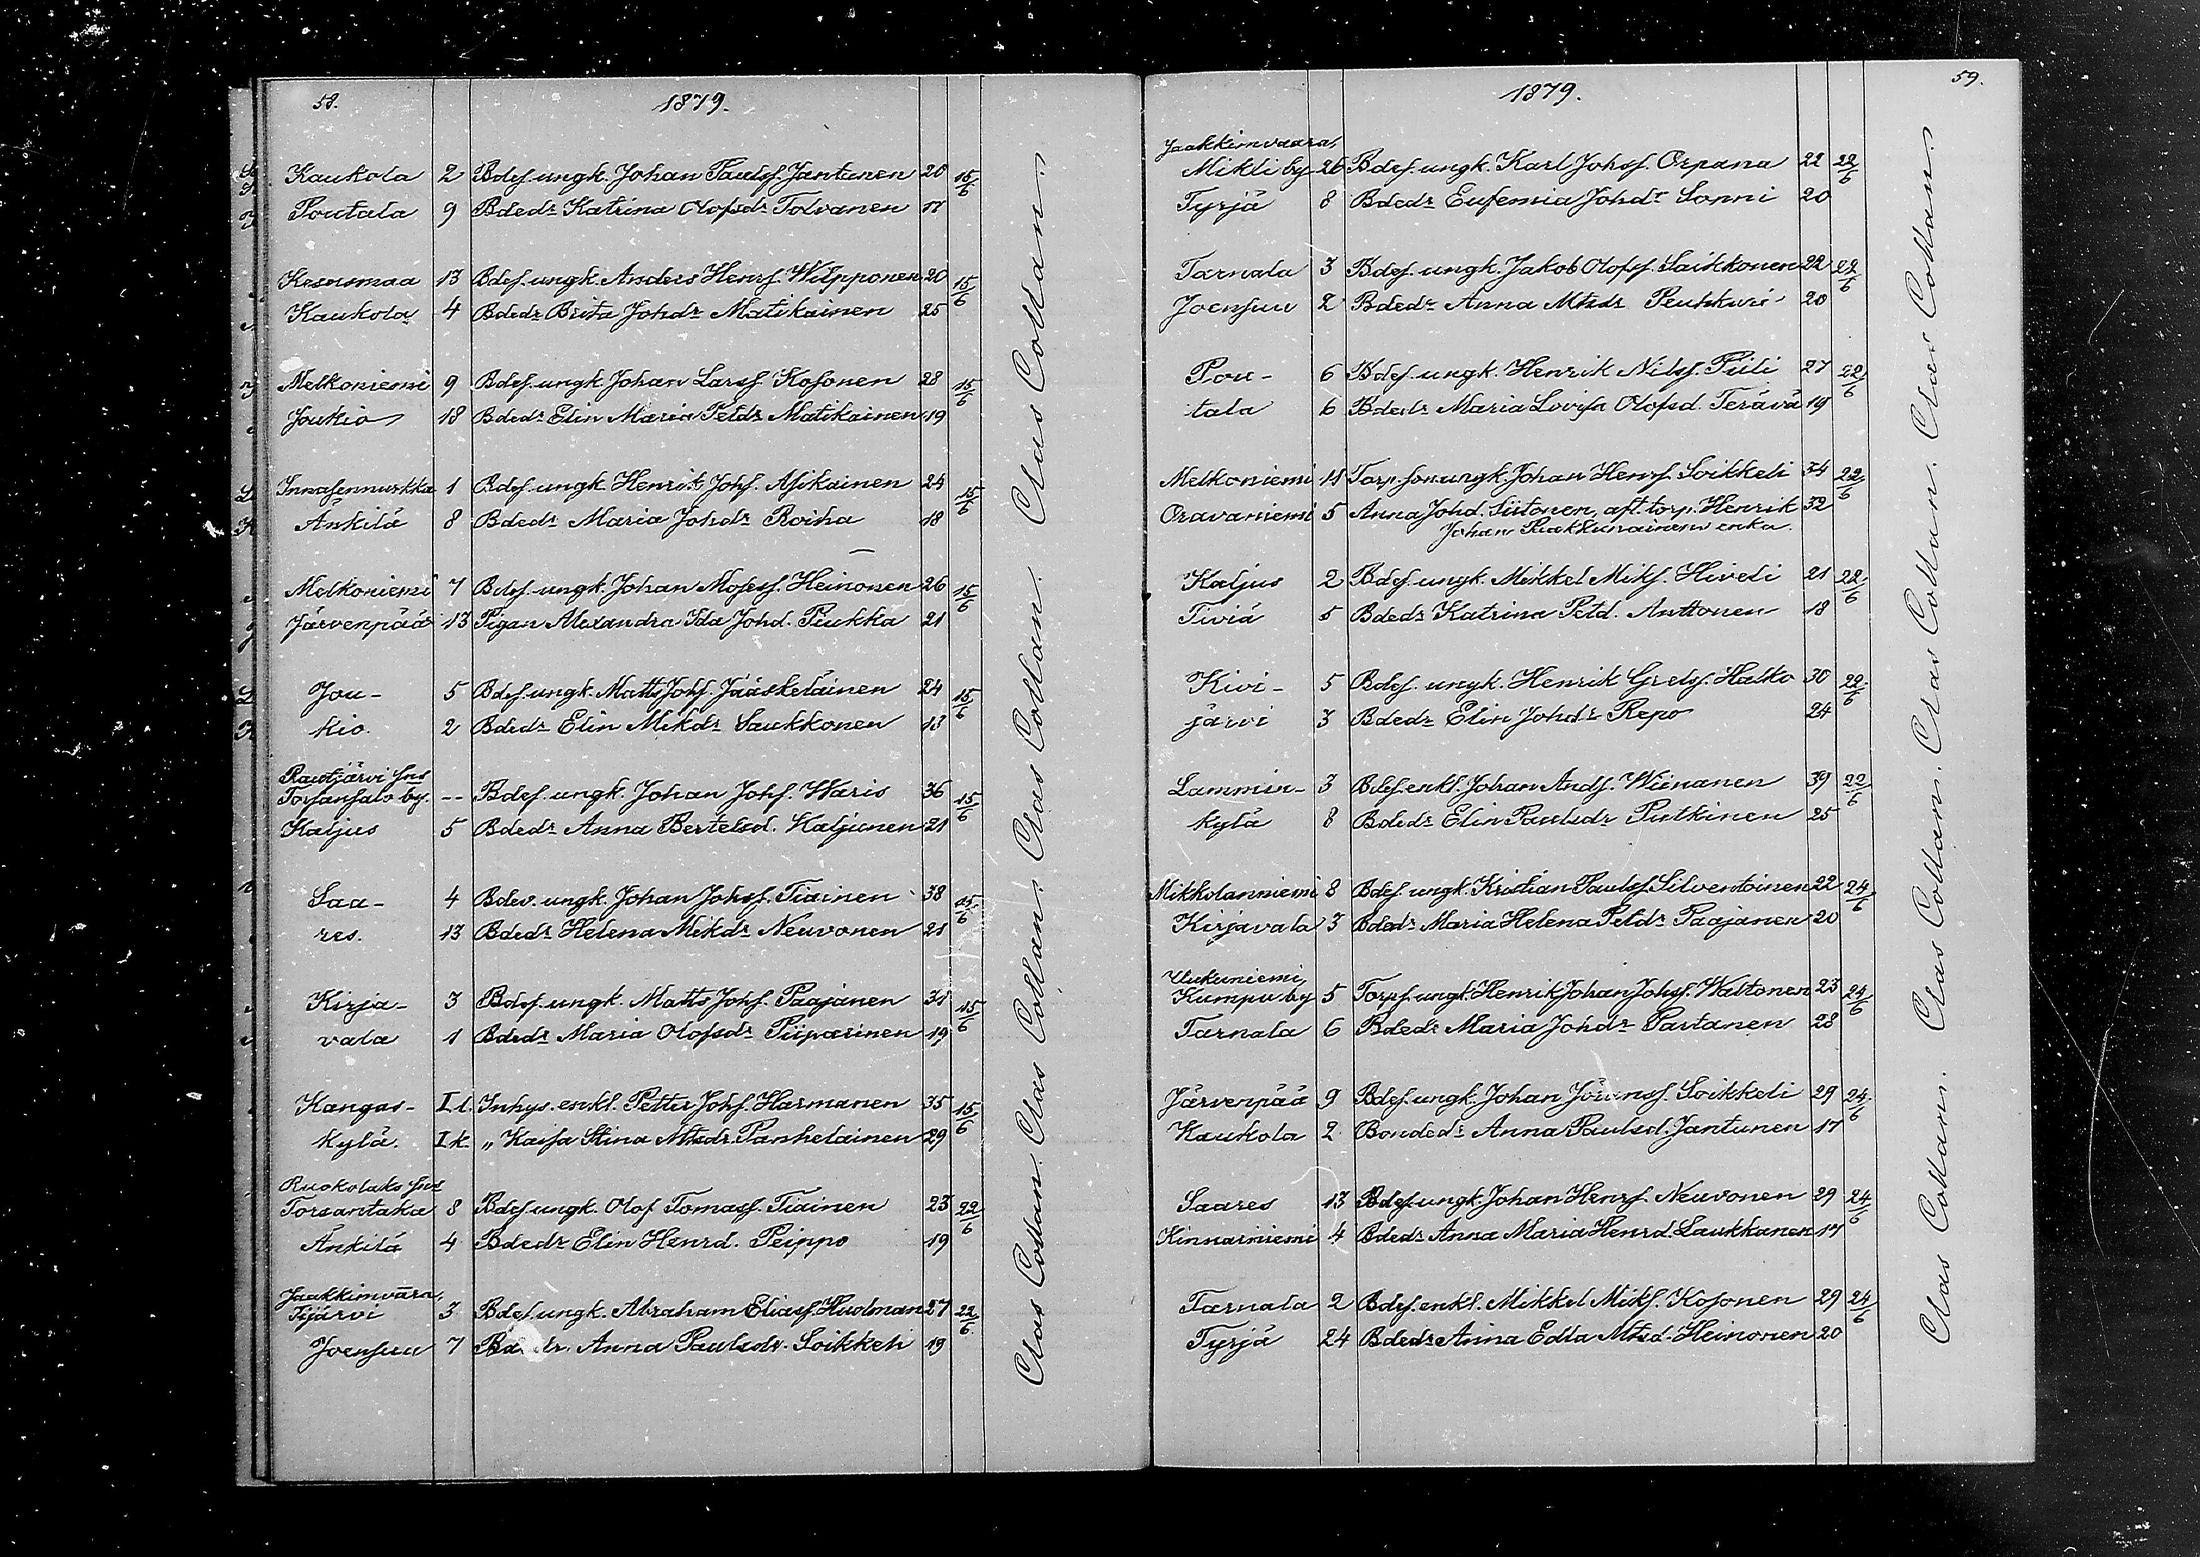 58.
1879.
Kaukola 2 Bdes. ungk. Johan Paulss. Jantunen 20 15/6
Poutala 9 Bdedr Katrina Olofsdr Tolvanen 17
Kesusmaa 13 Bdes. ungk. Anders Henrs. Wilpponen 20 15/6
Kaukola 4 Bdedr Brita Johdr Matikainen 25
Melkoniemi 9 Bdes. ungk. Johan Larss. Kosonen 28 15/6
Joukio 18 Bdedr Elin Maria Petdr Matikainen 19
Innasennurkka 1 Bdes. ungk. Henrik Johs. Asikainen 24 15/6
Änkilä 8 Bdedr Maria Johdr Roiha 18
Melkoniemi 7 Bdes. ungk. Johan Moses. Heinonen 26 15/6
Järvenpää 13 Pigan Alexandra Ida Johd. Piukka 21
Jou- 5 Bdes. ungk. Matts Johs. Jääskeläinen 24 15/6
kio. 2 Bdedr Elin Mikdr Saukkonen 13
Rautjärvi sns
Torsansalo by. -- Bdes. ungk. Johan Johs. Waris 36 15/6
Kaljus 5 Bdedr Anna Bertelsd. Kaljunen 21
Saa- 4 Bdev. ungk. Johan Johss. Tiainen 38 15/6
res. 13 Bdedr Helena Mikdr Neuvonen 21
Kirja- 3 Bdes. ungk. Matts Johs. Paajanen 31 15/6
vala 1 Bdedr Maria Olofsdr Piiparinen 19
Kangas- I l. Inhys. enkl. Petter Johs. Harmanen 35 15/6
kylä. I k. „ Kaisa Stina Mtsdr. Panhelainen 29
Ruokolaks sns
Torsantaka 8 Bdes. ungk. Olof Tomass. Tiainen 23 22/6
Änkilä 4 Bdedr Elin Henrd. Peippo 19
Jaakkimvara,
Tijärvi 3 Bdes. ungk. Abraham Eliass. Huolman 27 22/6
Joensuu 7 Anna Paulsdr. Soikkeli 19
Clas Collan. Clas Collan. Clas Collan. Clas Collan. Clas Collan.
59.
1879.
Jaakkimvaara,
Mikli by 26 Bdes. ungk. Karl Johss. Orpana 22 22/6
Tyrjä 8 Bdedr Eufemia Johdr Sonni 20
Tarnala 3 Bdes. ungk. Jakob Olofss. Saikkonen 22 22/6
Joensuu 2 Bdedr Anna Mtsdr Peuhkuri 20
Pou- 6 Bdes. ungk. Henrik Nilss. Piili 27 22/6
tala 6 Bdedr Maria Lovisa Olofsd. Terävä 19
Melkoniemi 11 Torp. son ungk. Johan Henrs. Soikkeli 34 22/6
Oravaniemi 5 Anna Johd. Siitonen, afl. torp. Henrik 32
Johan Paakkunainens enka.
Kaljus 2 Bdes. ungk. Mikkel Miks. Hiveli 21 22/6
Tiviä 5 Bdedr Katrina Petd. Anttonen 18
Kivi- 5 Bdes. ungk. Henrik Grels. Halko 30 22/6
järvi 3 Bdedr Elin Johdr Repo 24
Lammin- 3 Bdes. enkl. Johan Ands. Wiinanen 39 22/6
kylä 8 Bdedr Elin Paulsdr Putkinen 25
Mikkolanniemi 8 Bdes. ungk. Kristian Paulss. Silventoinen 22 24/6
Kirjavala 3 Bdedr Maria Helena Petdr Paajanen 20
Uukuniemi,
Kumpu by 5 Torps. ungk. Henrik Johan Johss. Waltonen 23 24/6
Tarnala 6 Bdedr Maria Johdr Partanen 28
Järvenpää 9 Bdes. ungk. Johan Jöranss. Soikkeli 29 24/6
Kaukola 2 Bondedr Anna Paulsd. Jantunen 17
Saares 13 Bdes. ungk. Johan Henrs. Neuvonen 29 24/6
Kinnarniemi 4 Bdedr Anna Maria Henrd. Laukkanen 17
Tarnala 2 Bdes. enkl. Mikkel Miks. Kosonen 29 24/6
Tyrjä 24 Bdedr Anna Edla Mtsd. Heinonen 20
Clas Collan. Clas Collan. Clas Collan. Clas Collan. Clas Collan.